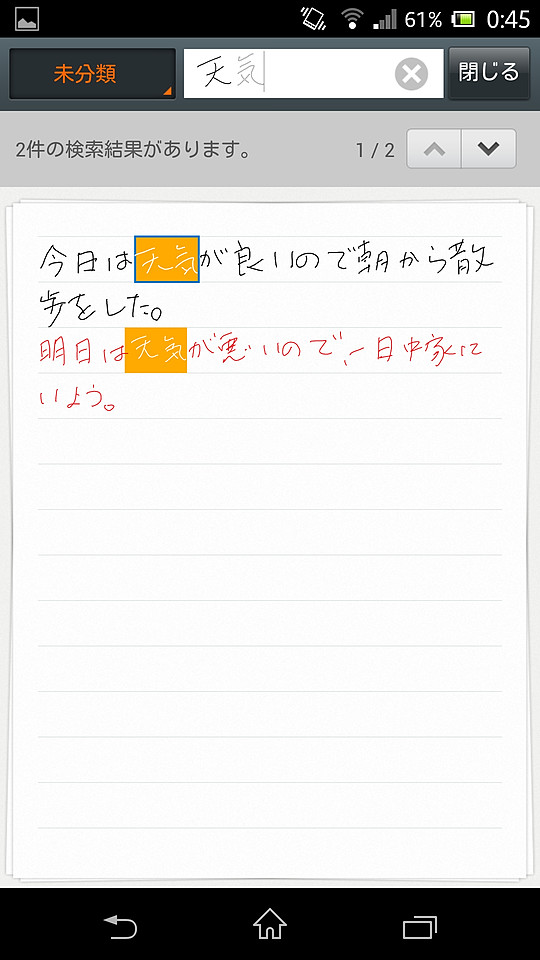 61% 0:45
未分類 天気 閉じる
2件の検索結果があります。 1 / 2
今日は天気が良いので朝から散
歩をした。
明日は天気が悪いので、一日中家に
いよう。